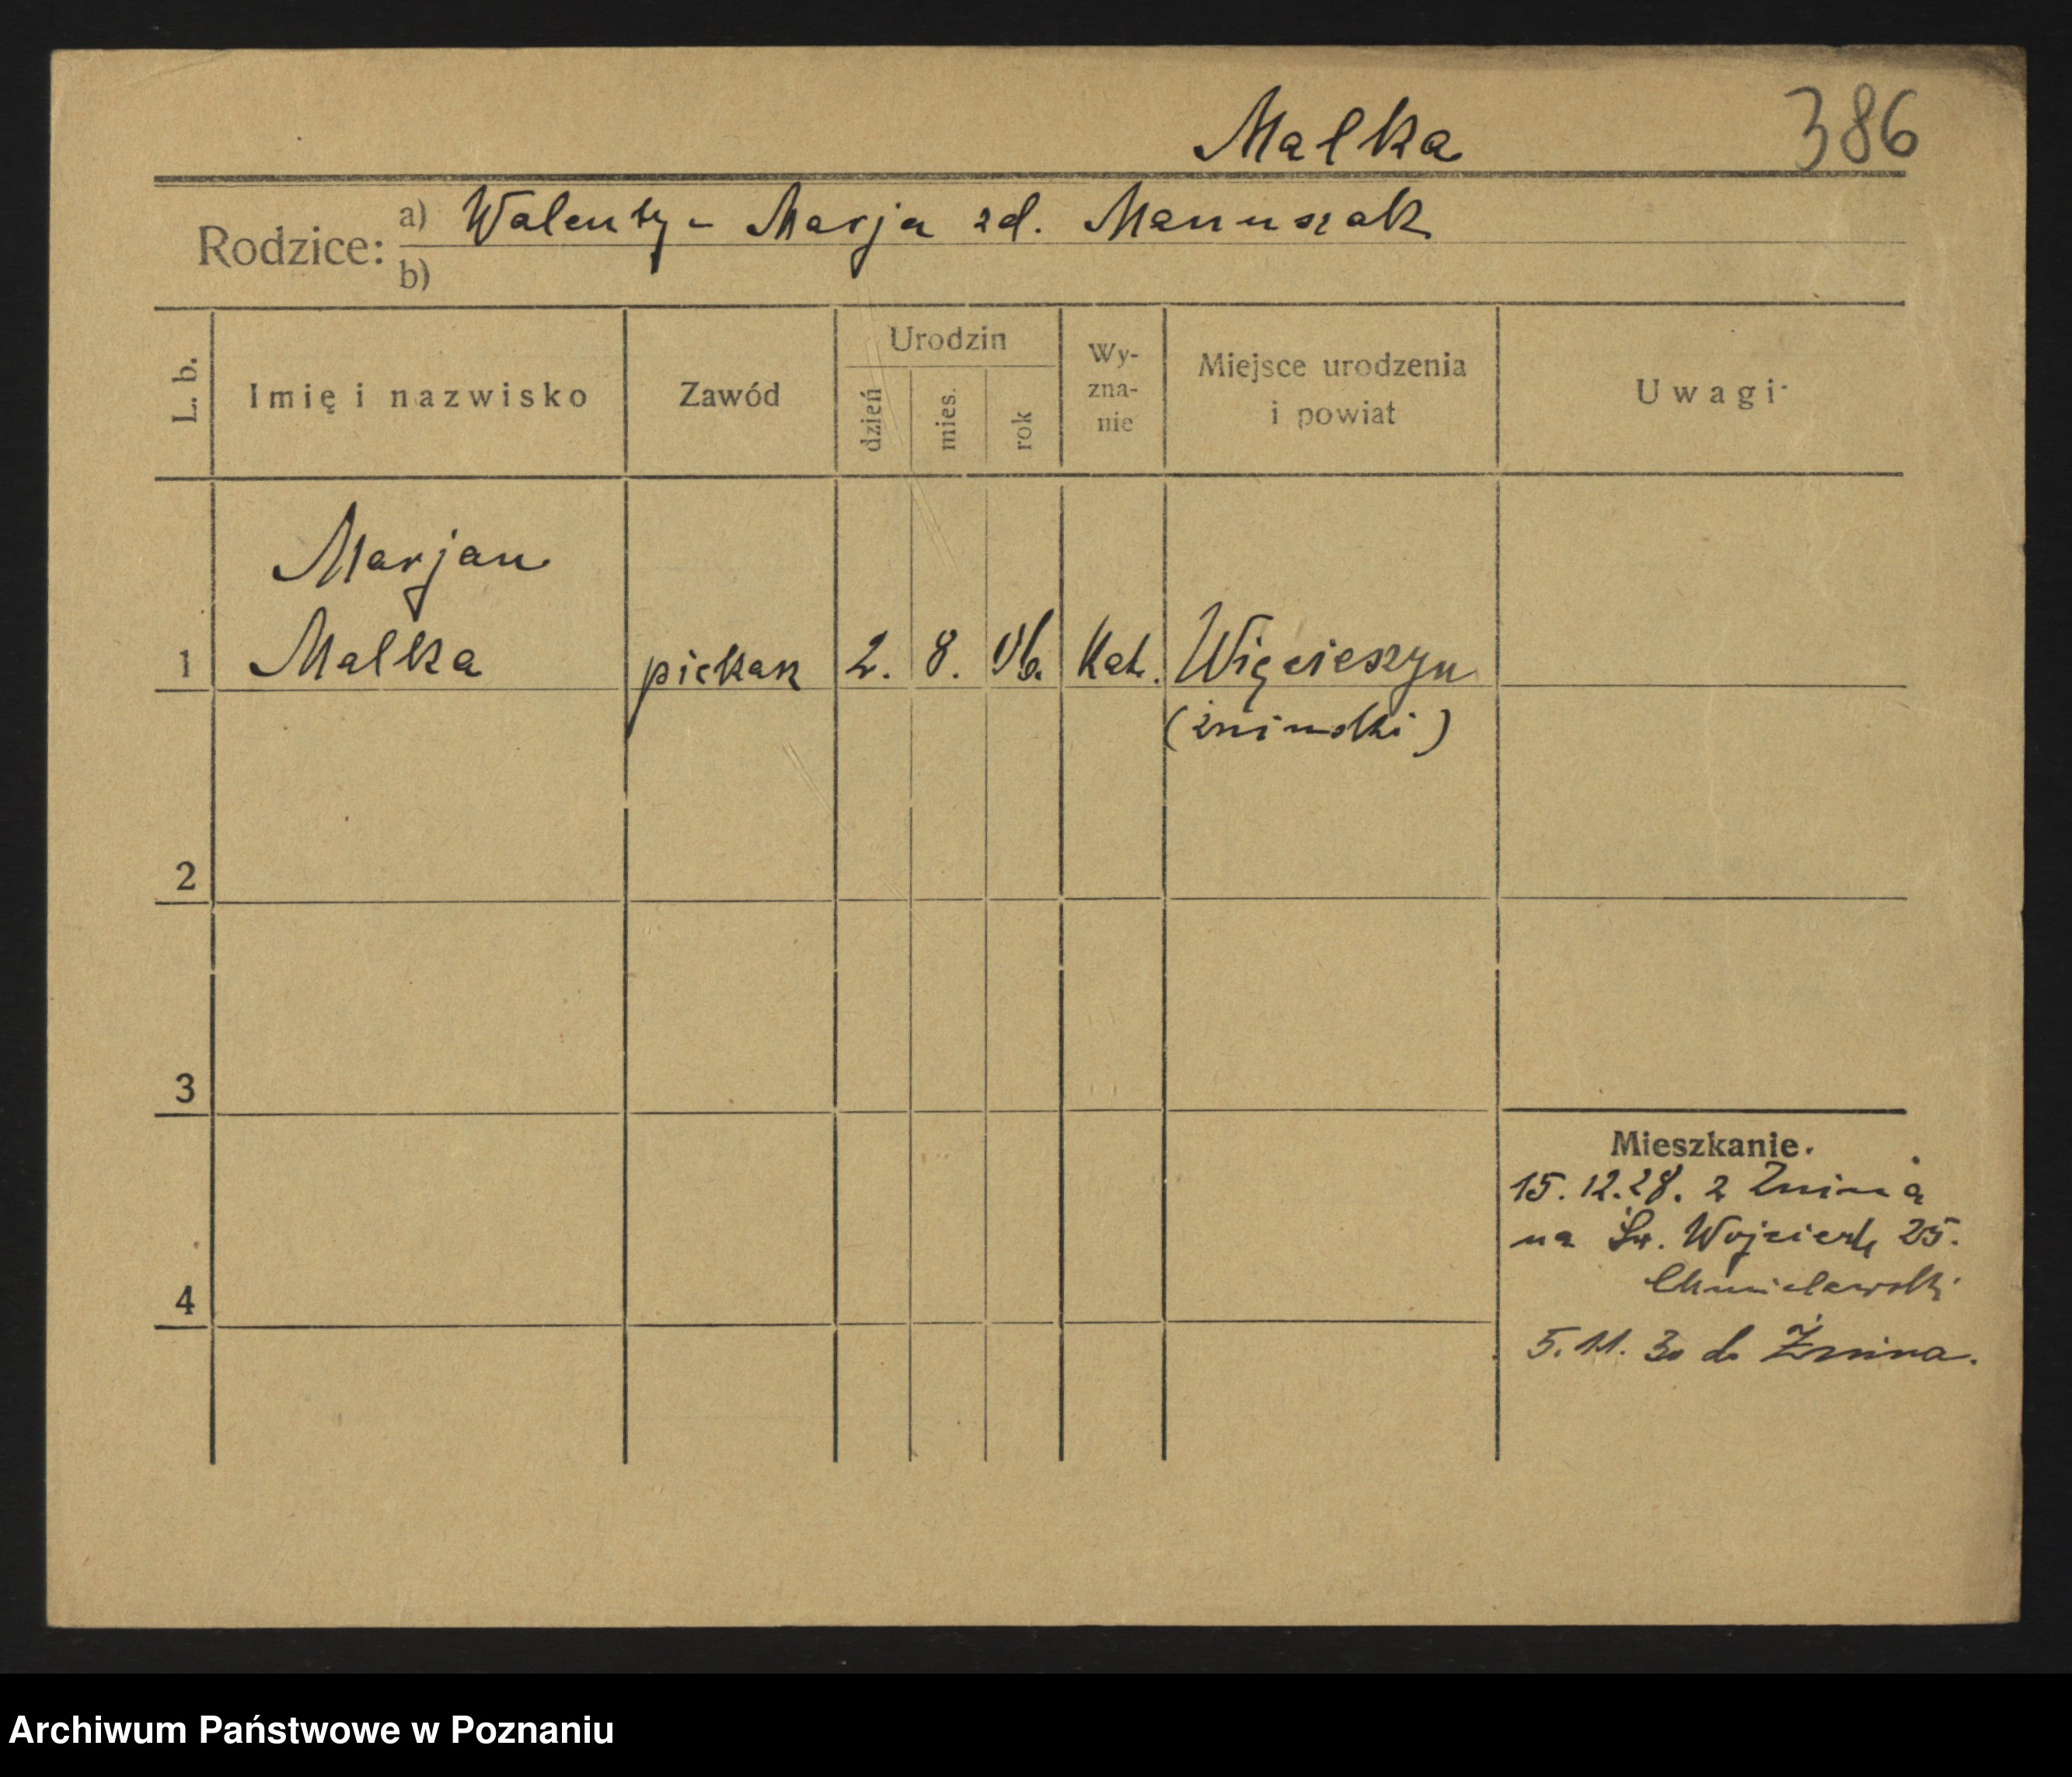 Malka 386
Rodzice: a) Walenty - Marja zd. Manuszak
b)
L. b. Imię i nazwisko Zawód Urodzin dzień mies. rok Wy-zna-nie Miejsce urodzenia i powiat Uwagi
Marjan
1 Malka piekarz 2. 8. 06. Kat. Więcieszyn
(żniński)
2
3
Mieszkanie.
15.12.28. z Żnina
na Św. Wojciech 25.
4
5.11.30 do Żnina.
Archiwum Państwowe w Poznaniu